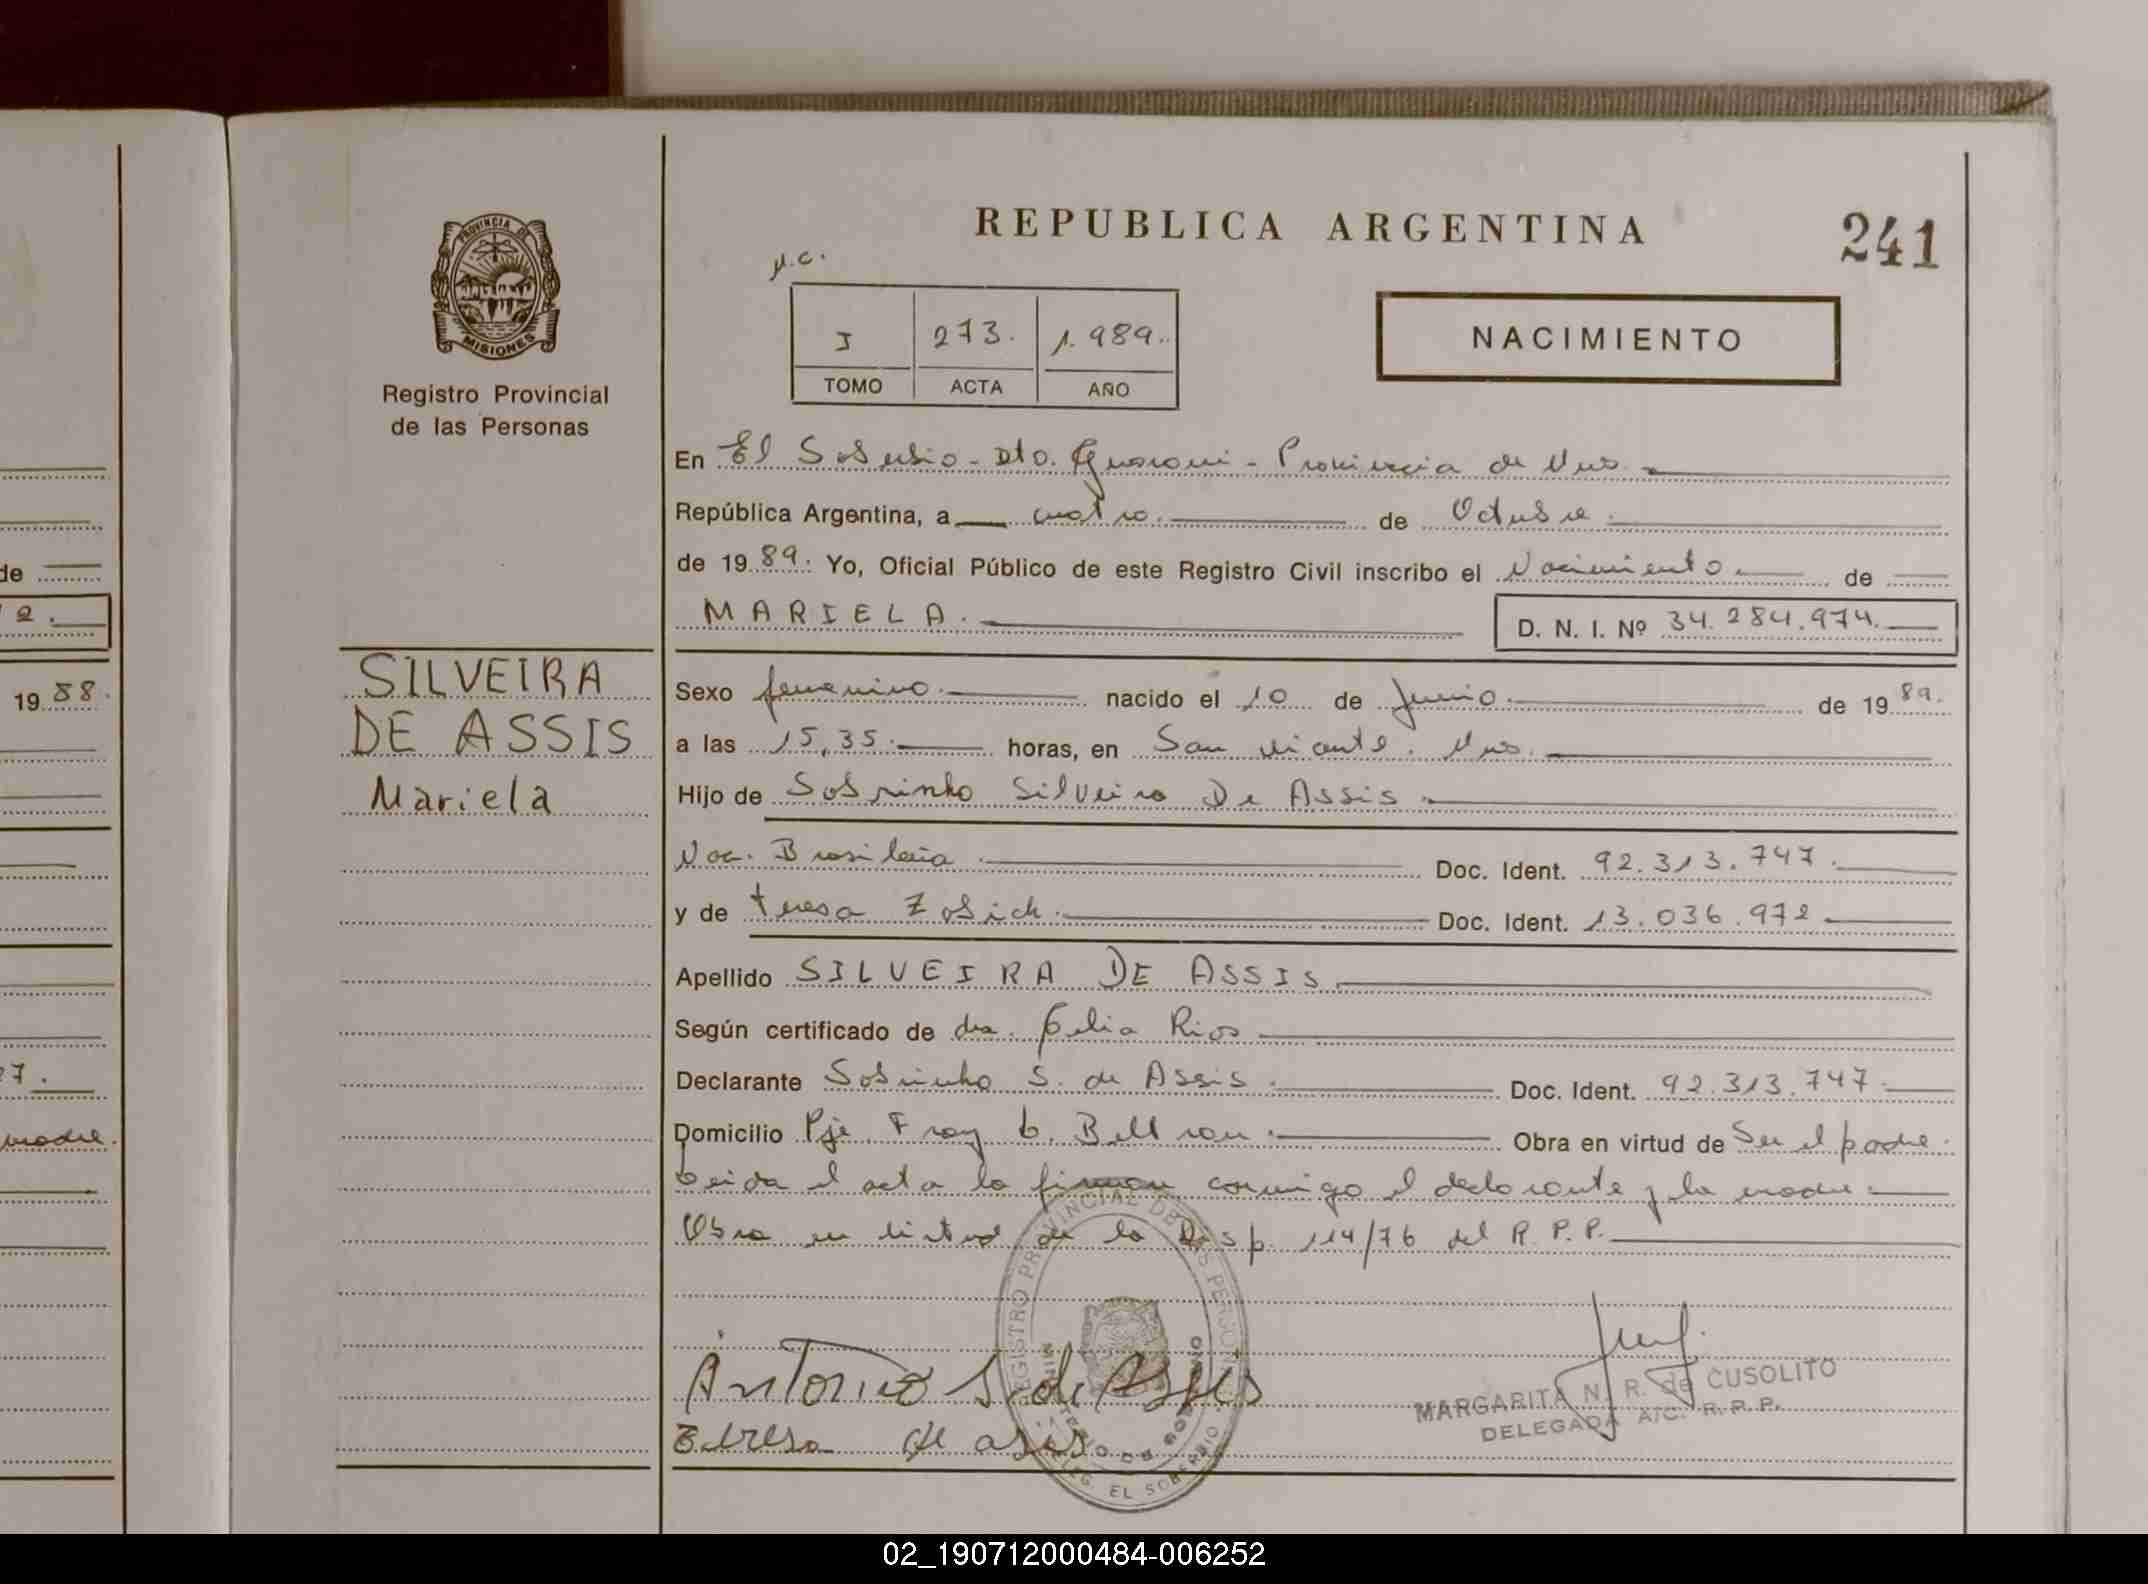 PROVINCIA DE
MISIONES
Registro Provincial
de las Personas
SILVEIRA
DE ASSIS
Mariela
REPUBLICA ARGENTINA
241
I 273. 1.989.
TOMO ACTA AÑO
NACIMIENTO
En El Soberbio - Dto. Guarani - Provincia de Mnes.
República Argentina, a cuatro. de Octubre.
de 1989. Yo, Oficial Público de este Registro Civil inscribo el Nacimiento de
MARIELA. D. N. I. Nº 34.284.974.
Sexo femenino. nacido el 10 de Junio de 1989.
a las 15,35. horas, en San Vicente. Mnes.
Hijo de Sobrinho Silveira De Assis.
Nac. Brasileña Doc. Ident. 92.313.747.
y de teresa Zobich. Doc. Ident. 13.036.972
Apellido SILVEIRA DE ASSIS
Según certificado de dra. Celia Rios
Declarante Sobrinho S. de Assis. Doc. Ident. 92.313.747.
Domicilio Pje. Fray L. Beltran. Obra en virtud de Ser el padre.
Leida el acta la firman conmigo el declarante y la madre.
Obra en virtud de la Disp. 114/76 del R.P.P.
Antonio S. de Assis
de asis
MARGARITA N. R. de CUSOLITO
DELEGADA A/C. R. P. P.
REGISTRO PROVINCIAL DE LAS PERSONAS
DELEG. EL SOBERBIO
de
2.
1988.
27.
madre.
02_190712000484-006252